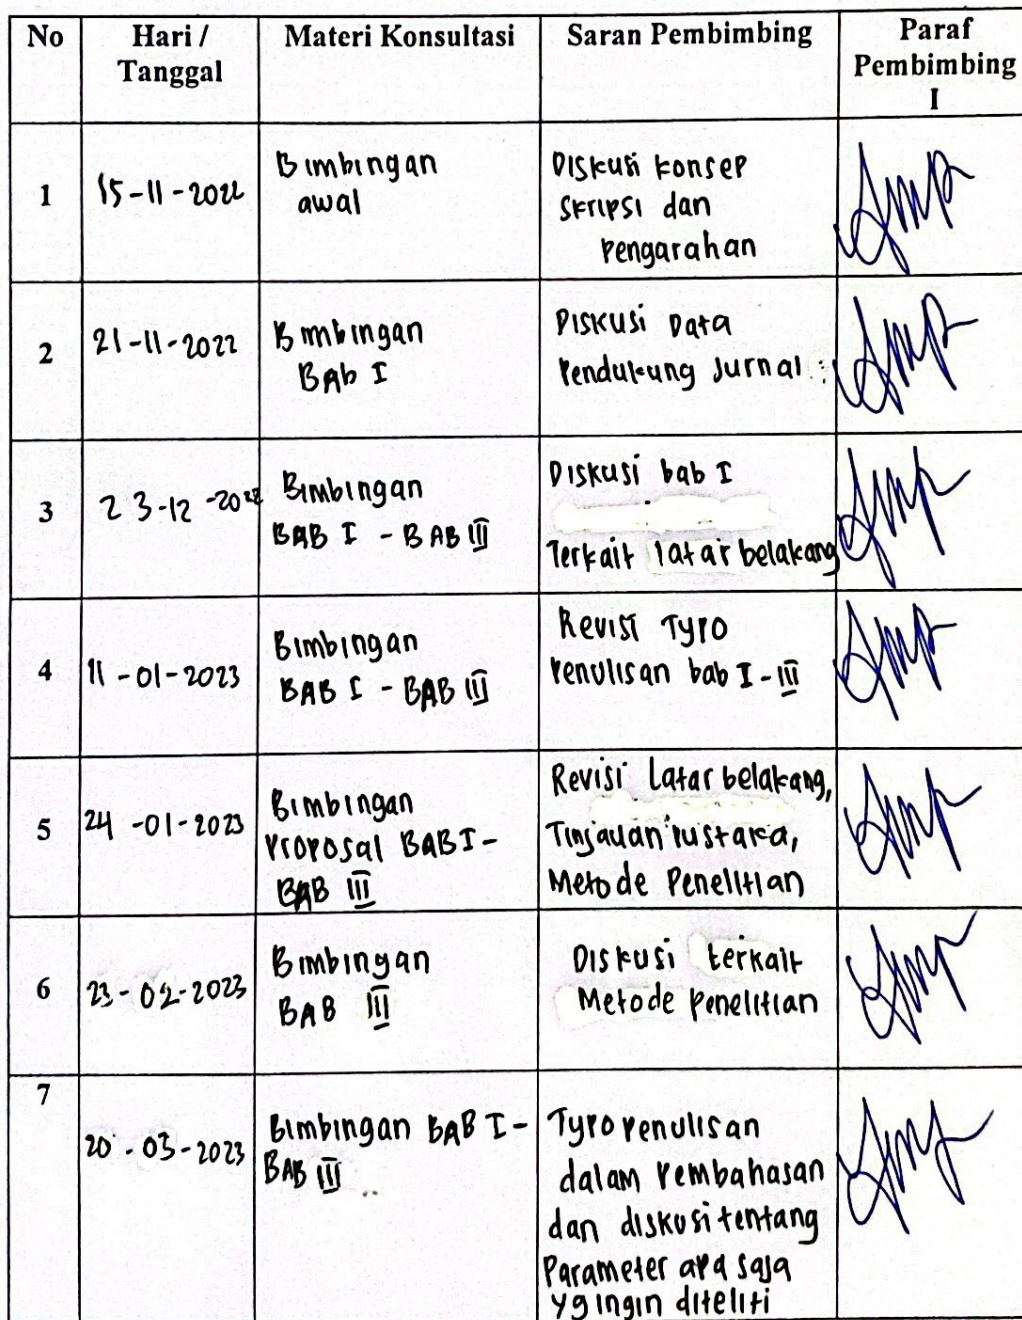 No
Hari /
Tanggal
Materi Konsultasi
Saran Pembimbing
Paraf
Pembimbing
I
1
15-11-2022
Bimbingan
awal
Diskusi konsep
skripsi dan
pengarahan
2
21-11-2022
Bimbingan
BAb I
Diskusi Data
Pendukung Jurnal
3
23-12-2022
Bimbingan
BAB I - BAB III
Diskusi bab I
Terkait latar belakang
4
11-01-2023
Bimbingan
BAB I - BAB III
Revisi Typo
Penulisan bab I-III
5
24-01-2023
Bimbingan
Proposal BAB I-
BAB III
Revisi Latar belakang,
Tinjauan pustaka,
Metode Penelitian
6
23-02-2023
Bimbingan
BAB III
Diskusi terkait
Metode penelitian
7
20-03-2023
Bimbingan BAB I-
BAB III
Typo penulisan
dalam pembahasan
dan diskusi tentang
Parameter apa saja
yg ingin diteliti